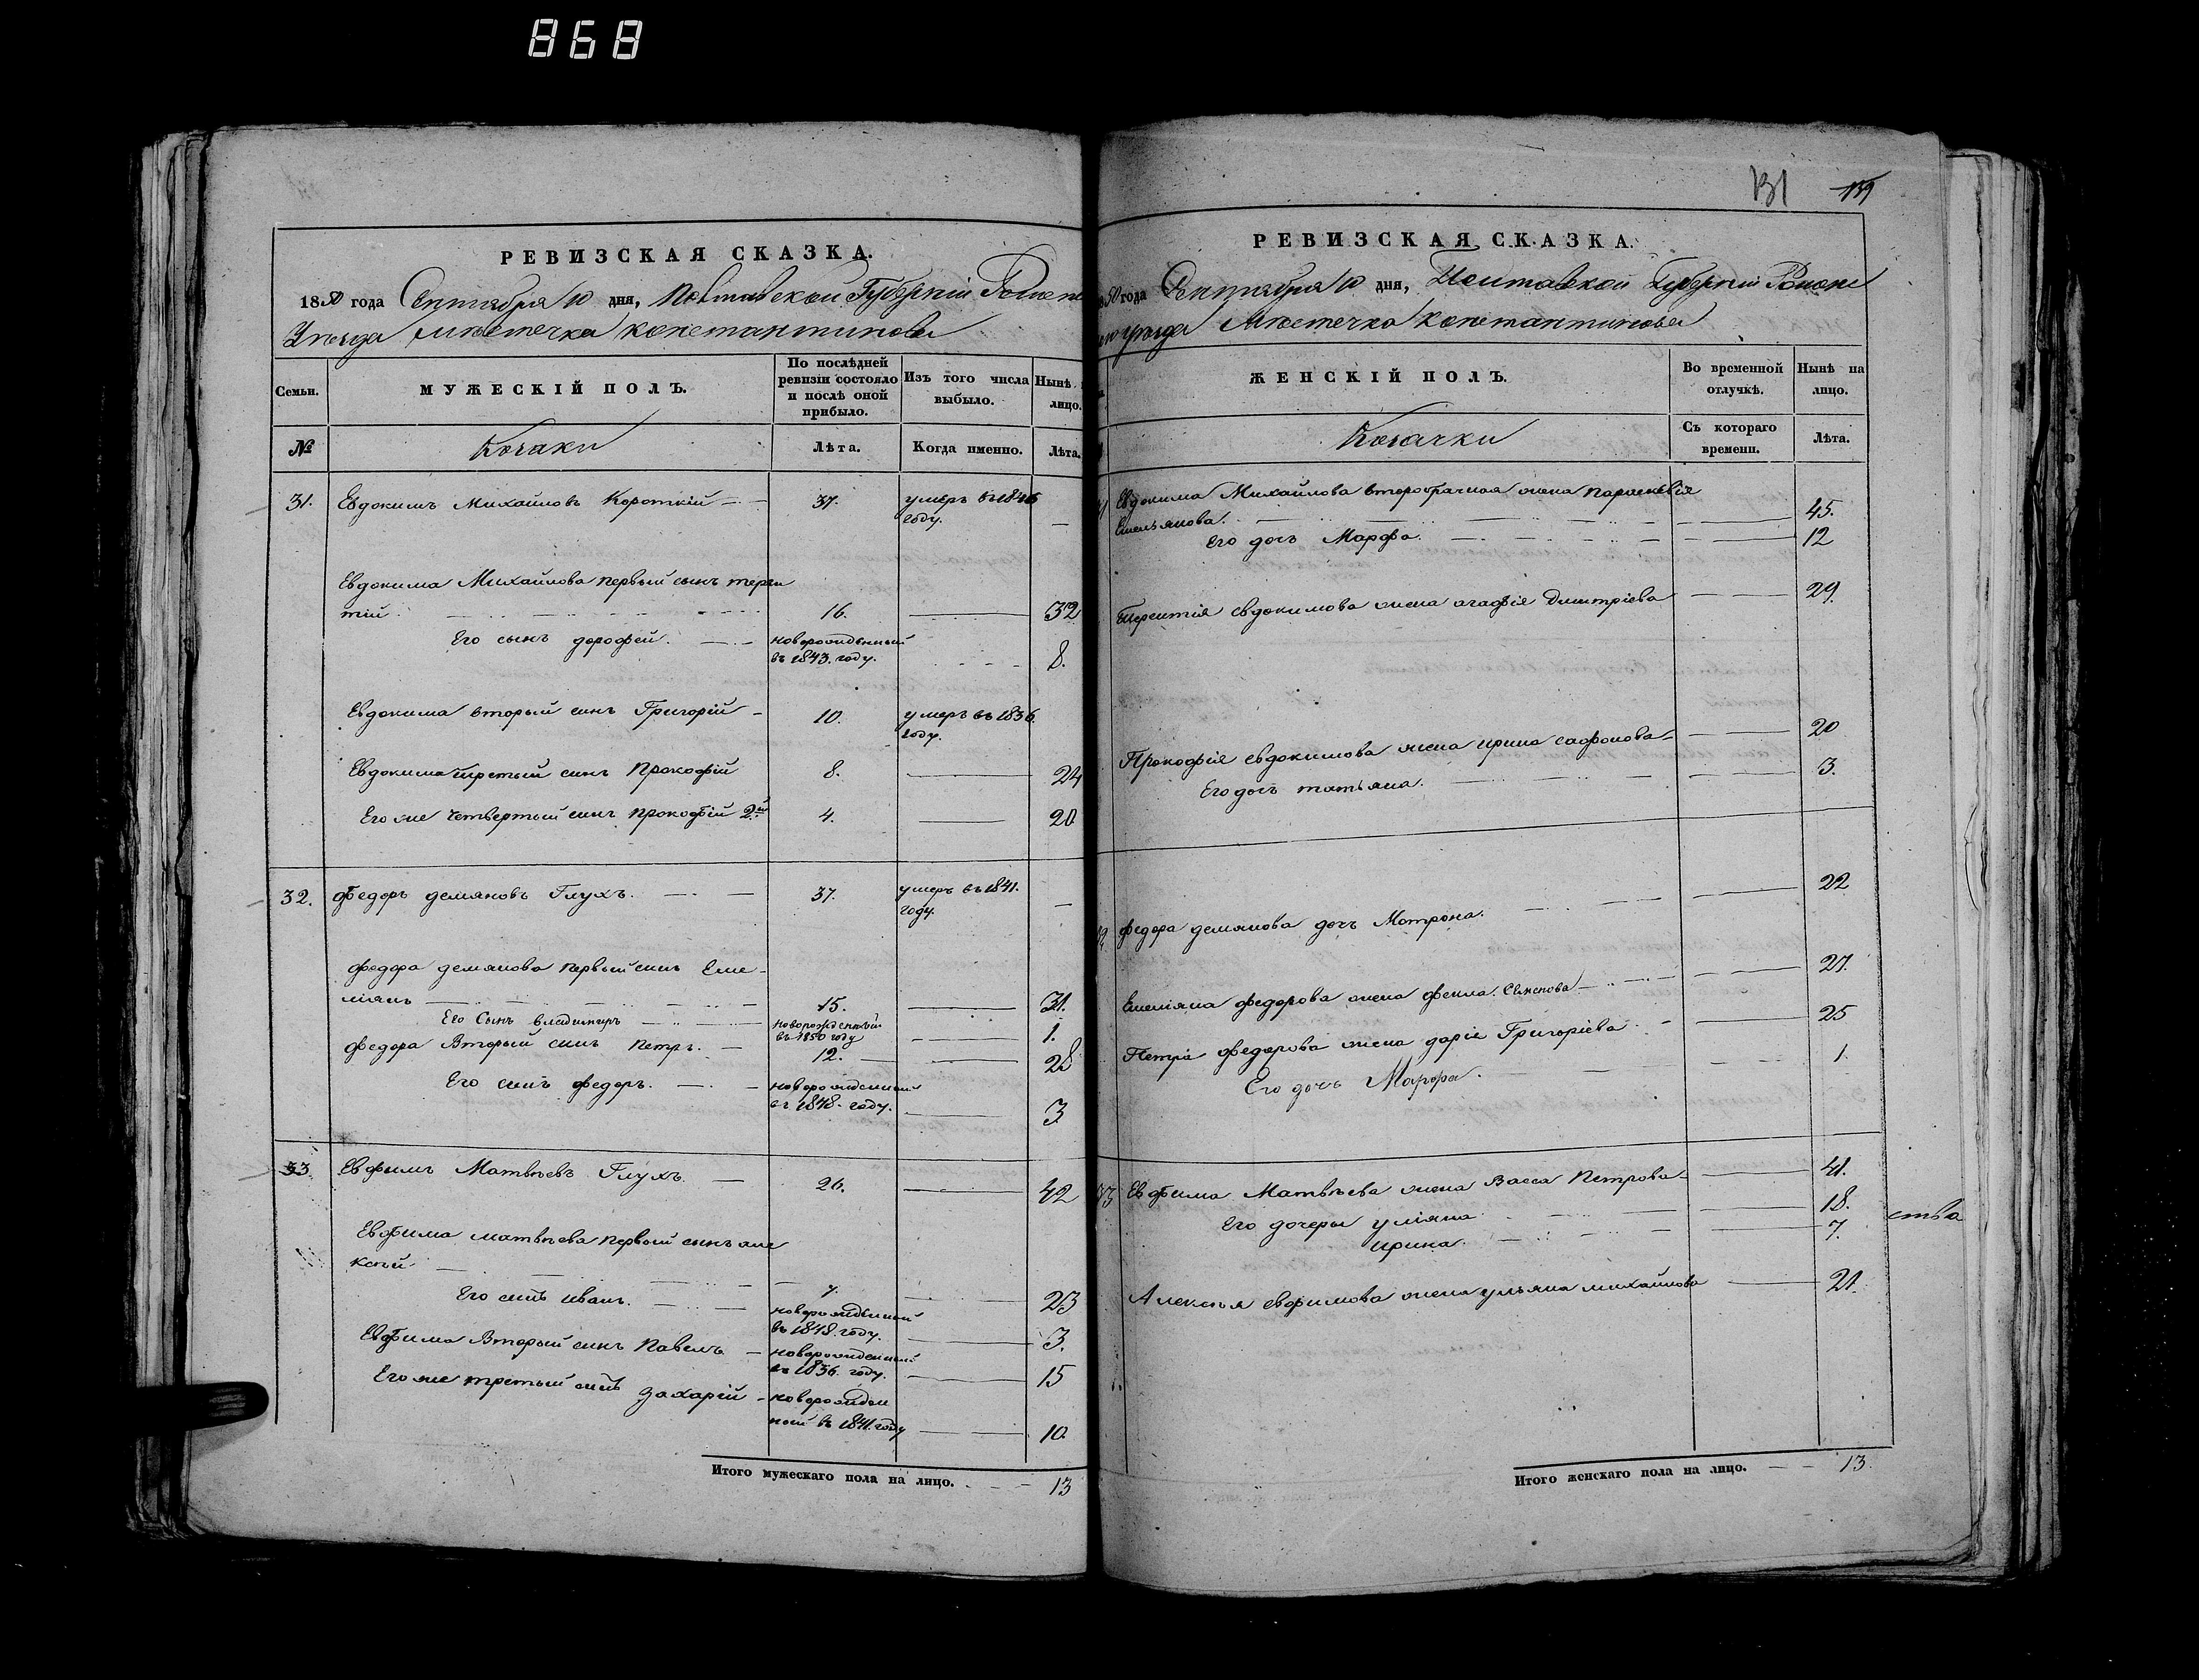 868
РЕВИЗСКАЯ СКАЗКА.
1850 года Сентября 10 дня, Полтавской Губерніи Роменс
Уѣзда мѣстечка константинова
Семьи.
МУЖЕСКІЙ ПОЛЪ.
По послѣдней ревизіи состояло и послѣ оной прибыло.
Изъ того числа выбыло.
Нынѣ лицо.
№
Козаки
Лѣта.
Когда именно.
Лѣта.
31. Евдокимъ Михайловъ Короткій 37. умеръ въ 1846
году.
Евдокима Михайлова первый сынъ терен
тій 16. 32
Его сынъ дорофей. новорожденный
въ 1843. году. 8.
Евдокима вторый сынъ Григорій 10. умеръ въ 1836.
году.
Евдокима третый сынъ Прокофій 8. 24
Его же четвертый сынъ Прокофій 2й 4. 20
32. федоръ демяновъ Глухъ. 37. умеръ въ 1841.
году.
федора демянова первый сынъ Еме-
ліянъ 15. 31.
Его Сынъ владимиръ новорожденный
въ 1850 году 1.
федора Вторый сынъ Петръ. 12. 28
Его сынъ федоръ. новорожденный
въ 1848. году. 3
33. Евфимъ Матвѣевъ Глухъ 26. 42
Евфима матвѣева первый сынъ але
ксѣй 7. 23
Его сынъ иванъ. новорожденный
въ 1848. году. 3.
Евфима Вторый сынъ Павелъ новорожденный
въ 1836. году. 15
Его же третый сынъ захарій новорожден
ный въ 1841. году 10.
Итого мужескаго пола на лицо. 13
131 139
РЕВИЗСКАЯ СКАЗКА.
50 года Сентября 10 дня, Полтавской Губерніи Роменс
уѣзда Мѣстечка Константинова
ЖЕНСКІЙ ПОЛЪ.
Во временной отлучкѣ.
Нынѣ на лицо.
Козачки
Съ котораго времени.
Лѣта.
Евдокима Михайлова второбрачная жена параскевія
Емельянова. 45.
Его дочь Марфа. 12
Терентія евдокимова жена агафія Дмитріева 29.
Прокофія евдокимова жена ирина сафронова 20
Его дочь татьяна. 3.
федора демянова дочь Матрона. 22
Емеліяна федорова жена фекла Семенова 27.
Петра федорова жена дарія Григоріева 25
Его дочь Марфа. 1.
33 Евфима Матвѣева жена Васса Петрова 41.
Его дочеры уліяна 18.
ирина. 7.
ства
Алексѣя евфимова жена ульяна михайлова 21.
Итого женскаго пола на лицо. 13.